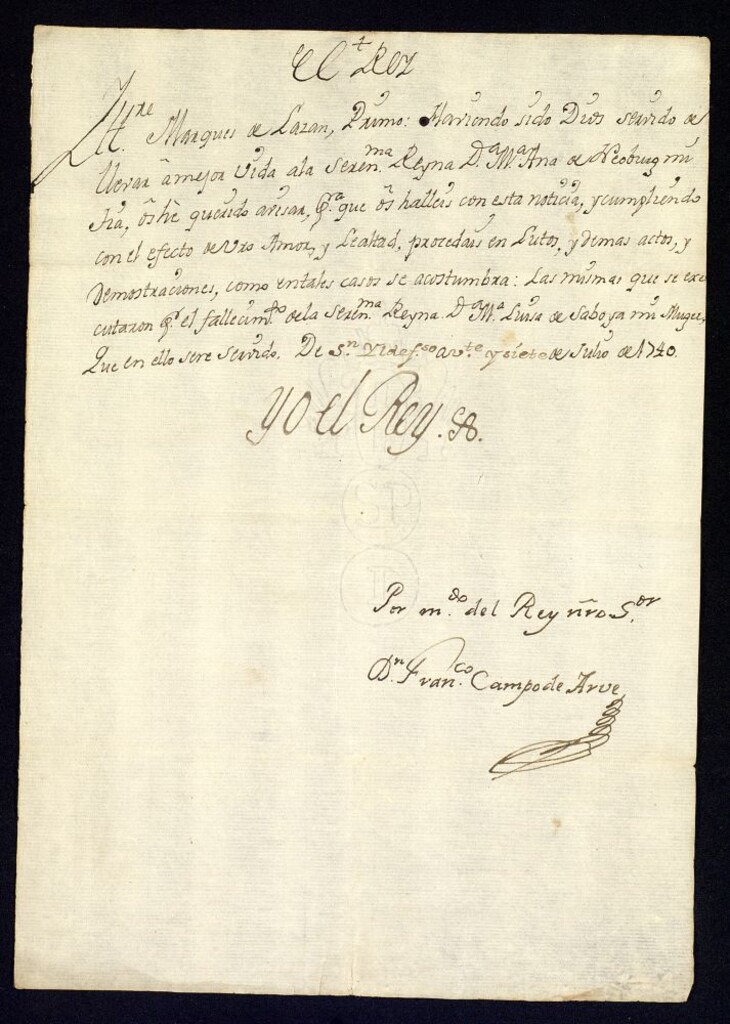 El Rey
Yll.re Marques de Lazan, Primo: Haviendo sido Dios servido de
llevar â mejor vida ala Seren.ma Reyna D.a M.a Ana de Neoburg mi
tia, ôs hê querido avisar, p.ra que ôs halleis con esta noticia, y cumpliendo
con el efecto de vr̃o Amor, y Lealtad, procedais en Lutos, y demas actos, y
Demostraciones, como entales casos se acostumbra: Las mismas que se exe
cutaron p.r el fallecim.to dela Seren.ma Reyna D.a M.a Luisa de Saboya mi Muger,
Que en ello sere servido. De S.n Yldef.so a v.te y siete de Julio de 1740.
yo el Rey.
Por m.do del Rey nr̃o S.or
D.n Fran.co Campo de Arve